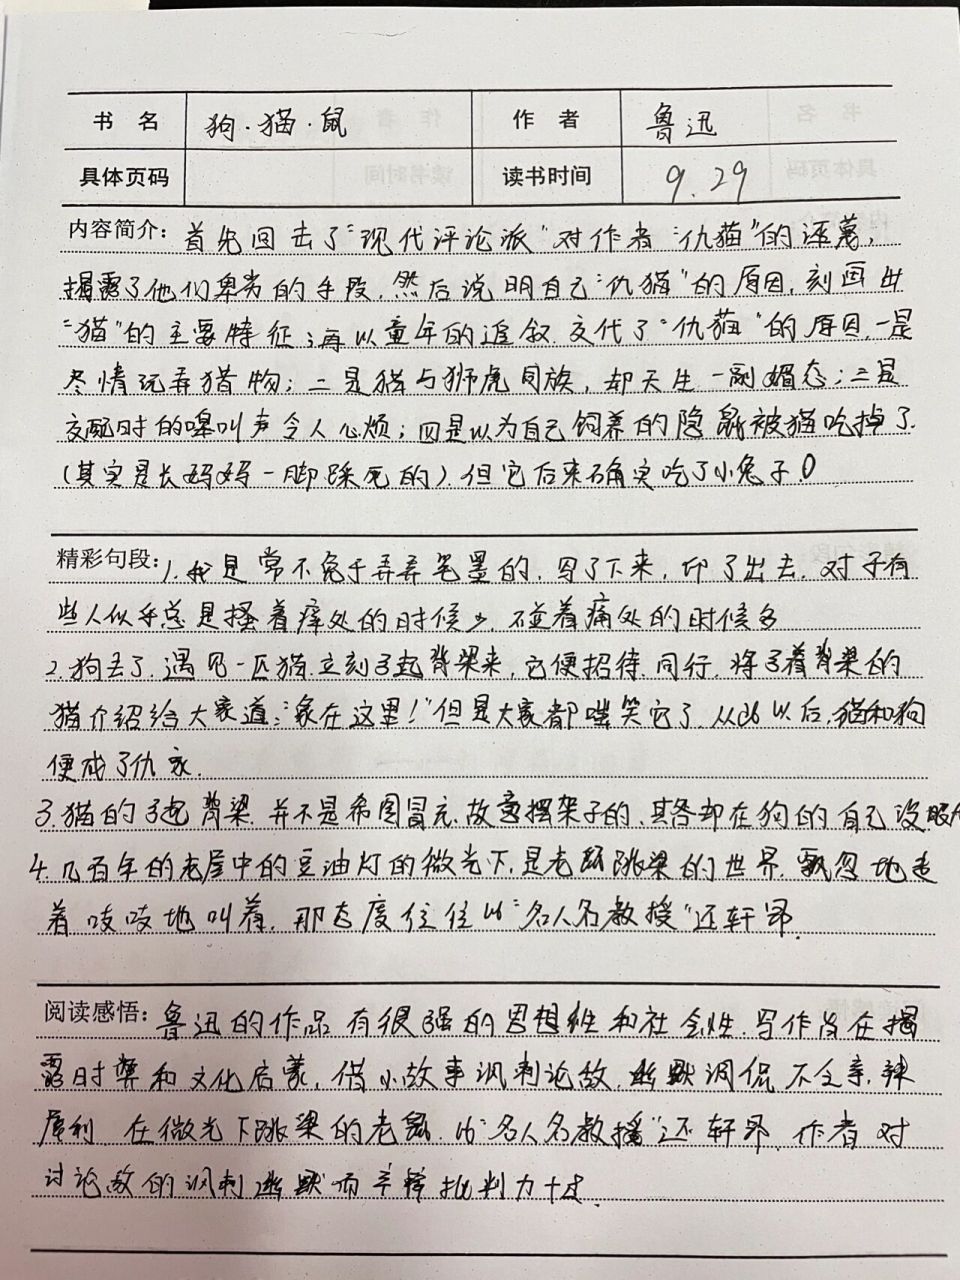 书 名 狗·猫·鼠 作 者 鲁迅
具体页码 读书时间 9.29
内容简介：首先回去了“现代评论派”对作者“仇猫”的诬蔑，
揭露了他们卑劣的手段，然后说明自己“仇猫”的原因，刻画出
“猫”的主要特征；再以童年的追叙，交代了“仇猫”的原因，一是
尽情玩弄猎物；二是猫与狮虎同族，却天生一副媚态；三是
交配时的嗥叫声令人心烦；四是以为自己饲养的隐鼠被猫吃掉了.
（其实是长妈妈一脚踩死的）但它后来确实吃了小兔子。
精彩句段：1.我是常不免于弄弄笔墨的，写了下来，印了出去，对于有
些人似乎总是搔着痒处的时候少，碰着痛处的时候多
2.狗去了，遇见一匹猫，立刻弓起脊梁来，它便招待，同行，将弓着脊梁的
猫介绍给大家道：“象在这里！”但是大家都嗤笑它了，从此以后，猫和狗
便成了仇家.
3.猫的弓起脊梁，并不是希图冒充，故意摆架子的，其咎却在狗的自己没眼
4.几百年的老屋中的豆油灯的微光下，是老鼠跳梁的世界，飘忽地走
着吱吱地叫着，那态度往往比“名人名教授”还轩昂.
阅读感悟：鲁迅的作品有很强的思想性和社会性，写作旨在揭
露时弊和文化启蒙，借小故事讽刺论敌，幽默调侃 不乏辛辣
犀利 在微光下跳梁的老鼠，比“名人名教授”还轩昂，作者对
讨论敌的讽刺幽默而辛辣批判力十足.